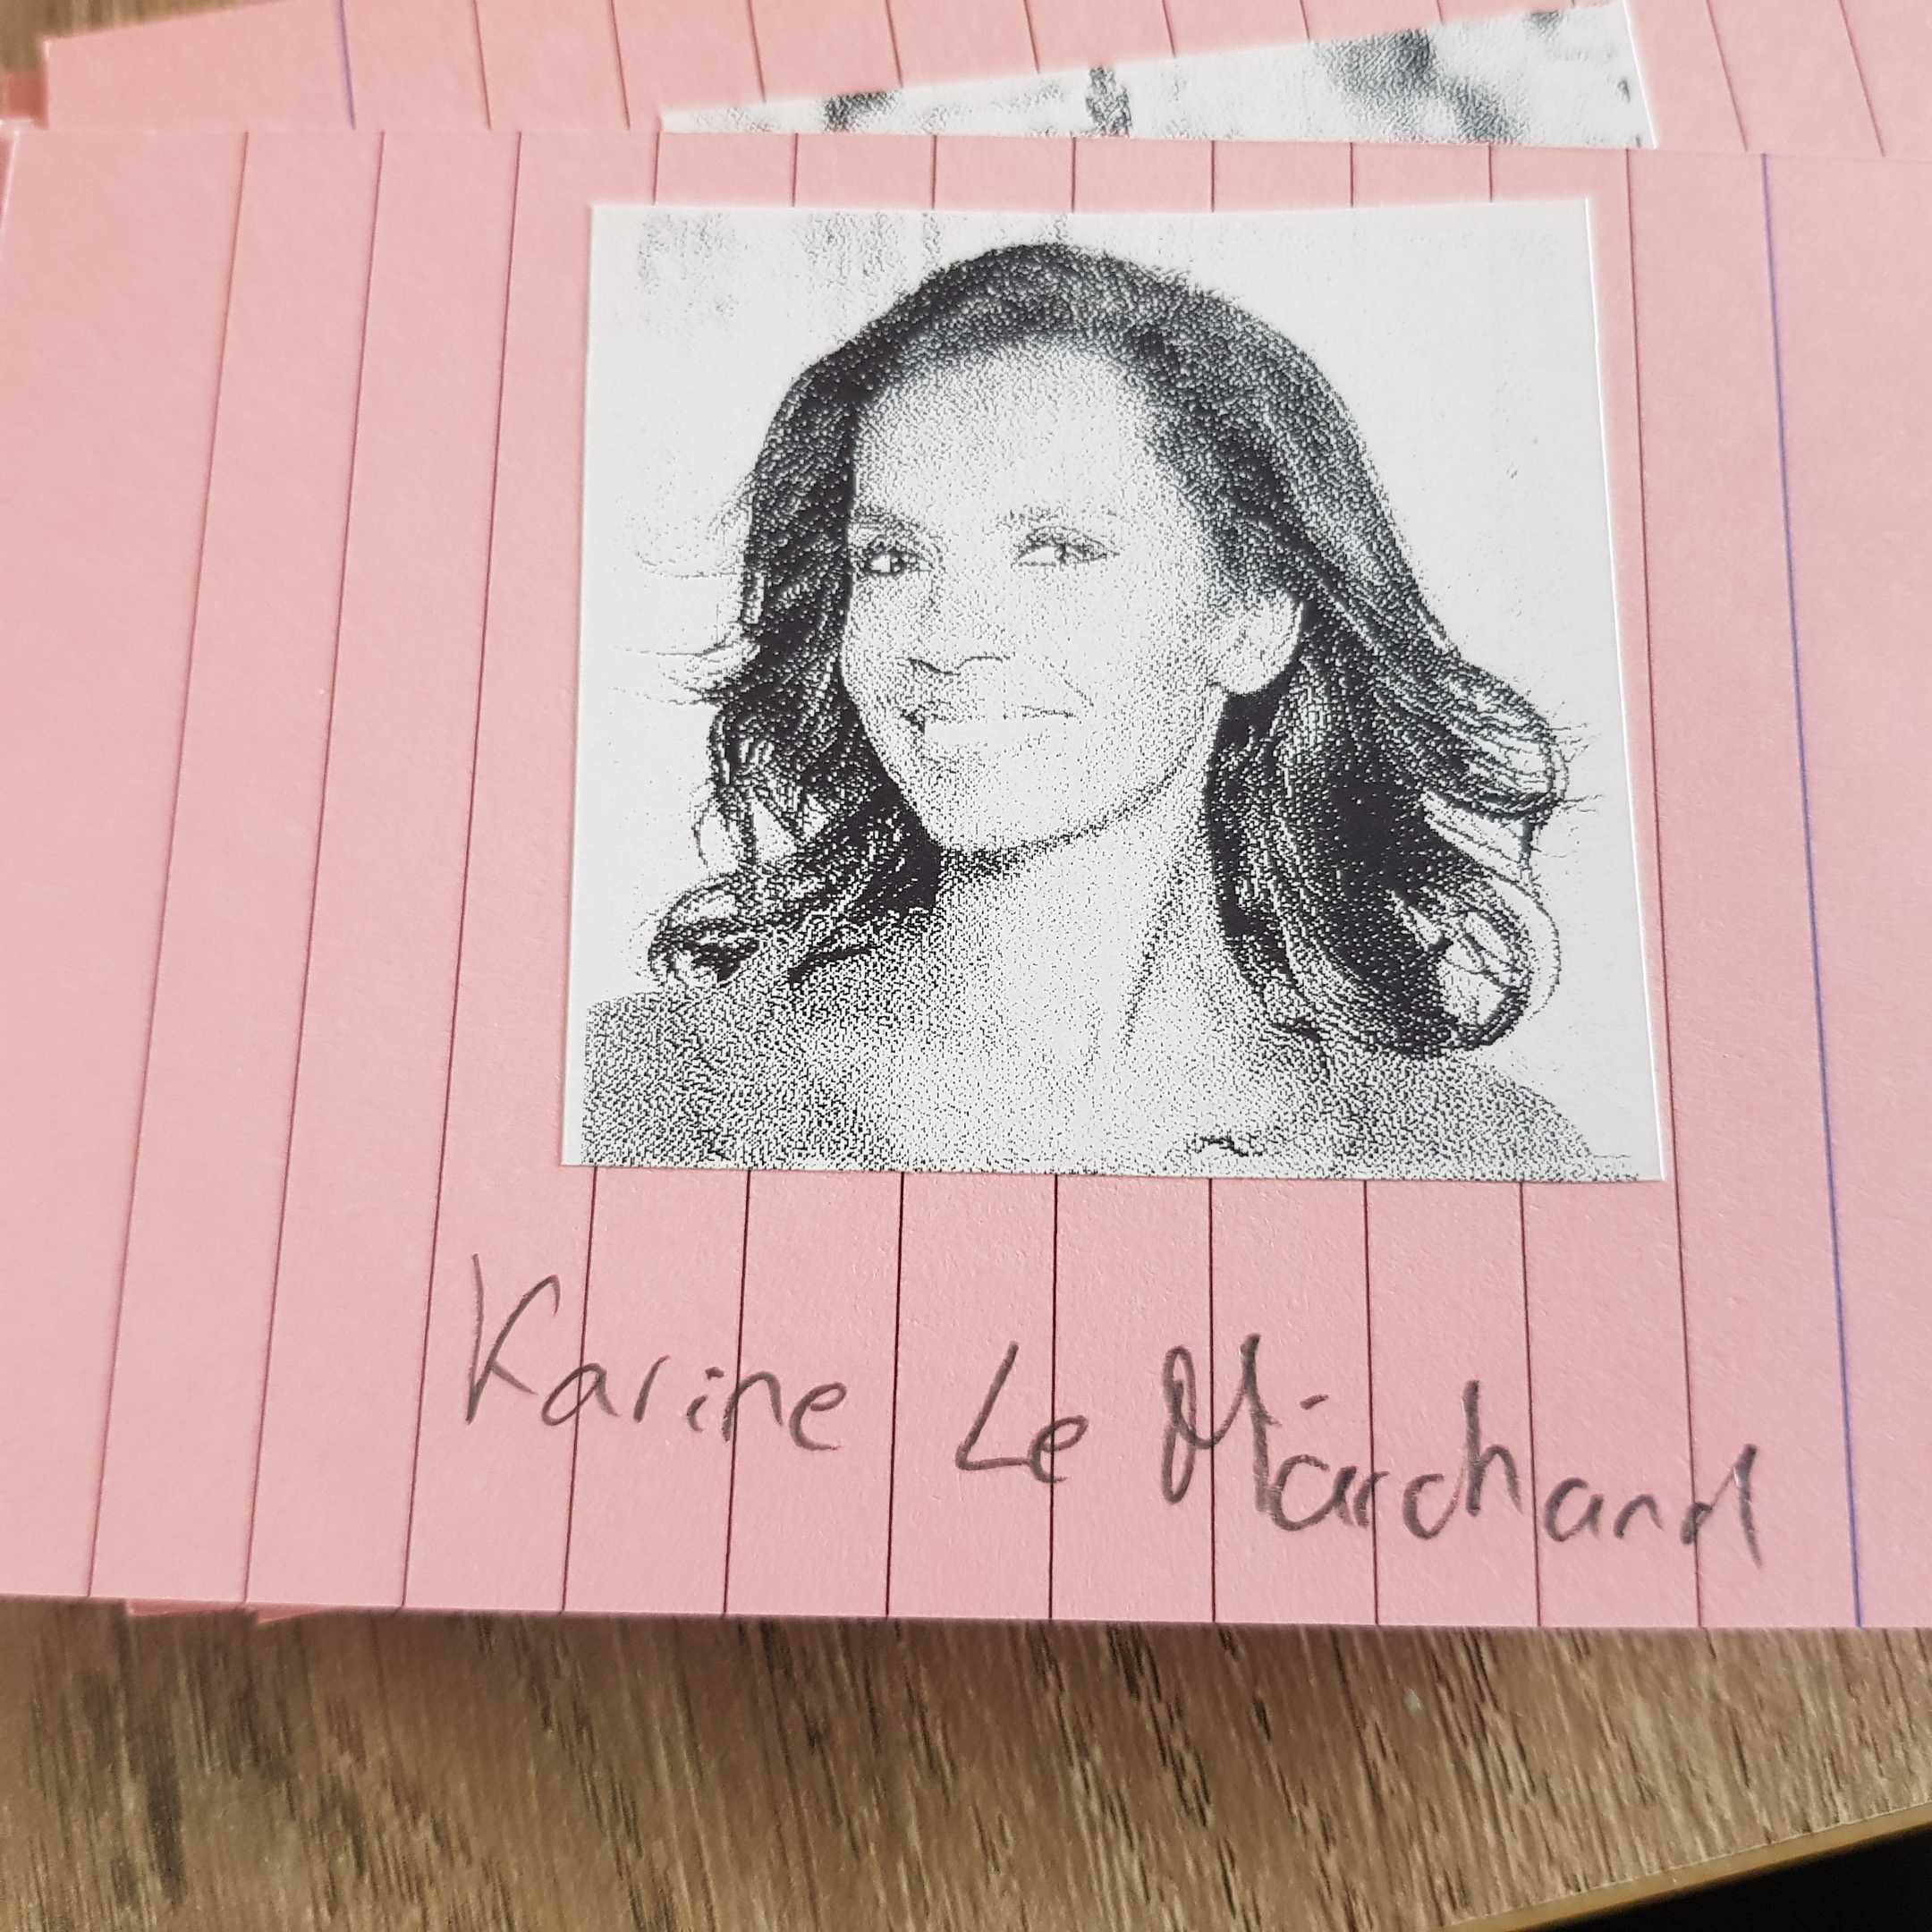 Karine Le Marchand